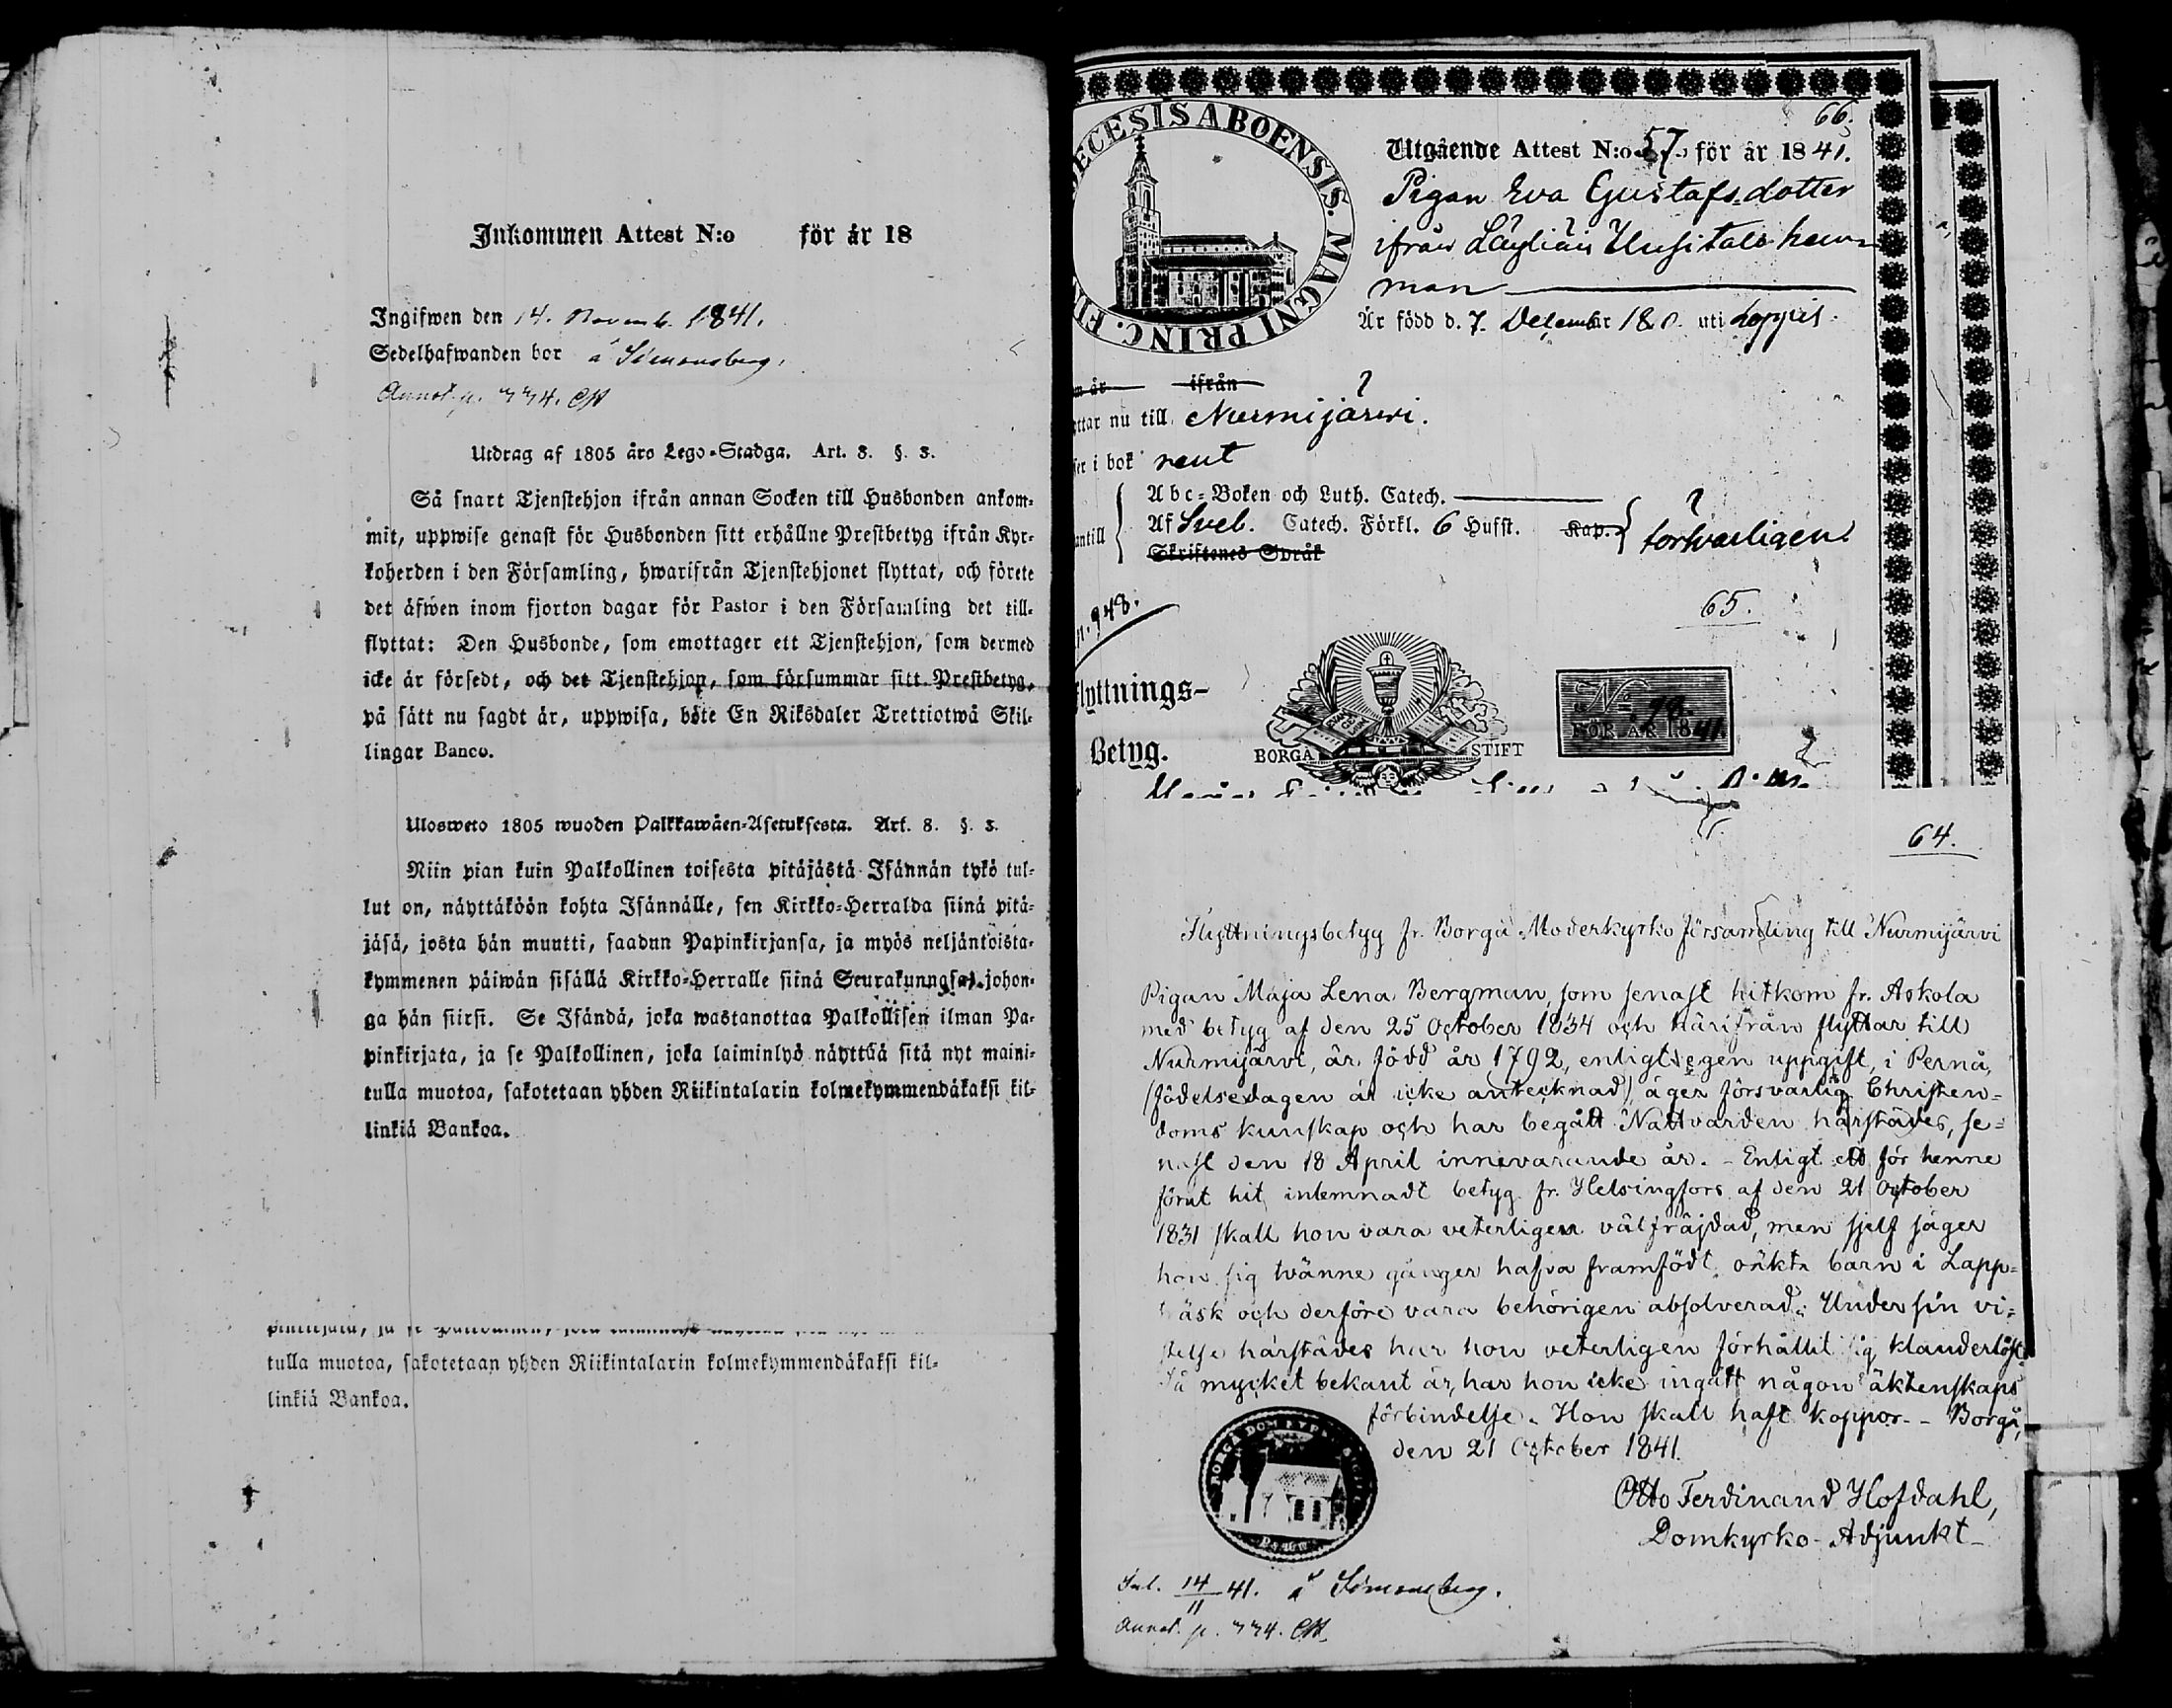 Inkommen Attest N:o för år 18
Ingifwen den 14. Novemb. 1841.
Sedelhafwanden bor å Simonsberg.
Annot. p. 774.
Utdrag af 1805 års Lego-Stadga. Art. 8. §. 3.
Så snart Tjenstehjon ifrån annan Socken till Husbonden ankom-
mit, uppwise genast för Husbonden sitt erhållne Prestbetyg ifrån Kyr-
koherden i den Församling, hwarifrån Tjenstehjonet flyttat, och förete
det äfwen inom fjorton dagar för Pastor i den Församling det till-
flyttat: Den Husbonde, som emottager ett Tjenstehjon, som dermed
icke är försedt, och det Tjenstehjon, som försummar sitt Prestbetyg,
på sätt nu sagdt är, uppwisa, böte En Riksdaler Trettiotwå Skil-
lingar Banco.
Ulosweto 1805 wuoden Palkkawäen-Asetuksesta. Art. 8. §. 3.
Niin pian kuin Palkollinen toisesta pitäjästä Isännän tykö tul-
lut on, näyttäköön kohta Isännälle, sen Kirkko-Herralda siinä pitä-
jäsä, josta hän muutti, saadun Papinkirjansa, ja myös neljäntoista-
kymmenen päiwän sisällä Kirkko-Herralle siinä Seurakunnasa, johon-
ga hän siirsi. Se Isändä, joka wastanottaa Palkollisen ilman Pa-
pinkirjata, ja se Palkollinen, joka laiminlyö näyttää sitä nyt maini-
tulla muotoa, sakotetaan yhden Riikintalarin kolmekymmendäkaksi kil-
linkiä Bankoa.
tulla muotoa, sakotetaan yhden Riikintalarin kolmekymmendäkaksi kil-
linkiä Bankoa.
66.
ECESIS ABOENSIS. MAGNI PRINC. FI
Utgående Attest N:o 57 för år 1841.
Pigan Eva Gustafsdotter
ifrån Läyliäis Uusitalo hem-
man
Är född d. 7. December 18 uti Loppis.
ifrån
ttar nu till Nurmijärwi.
i bok rent
Abc-Boken och Luth. Catech.
antill Af Sveb. Catech. Förkl. 6 Hufst. Kap. försvarligen
Skriftenes Språk
p. 948.
65.
lyttnings-
Betyg.
BORGÅ STIFT
No 78.
FÖR ÅR 1841
64.
Flyttningsbetyg fr. Borgå Moderkyrko församling till Nurmijärvi
Pigan Maja Lena Bergman, som senast hitkom fr. Askola
med betyg af den 25 October 1834 och härifrån flyttar till
Nurmijärvi, är född år 1792, enligt egen uppgift, i Pernå,
(födelsedagen är icke antecknad) äger försvarlig Christen-
doms kunskap och har begått Nattvarden härstädes, se-
nast den 18 April innevarande år. - Enligt ett för henne
förut hit inlemnadt betyg fr. Helsingfors af den 21 October
1831 skall hon vara veterligen välfräjdad, men sjelf säger
hon sig tvänne gånger hafva framfödt oäkta barn i Lapp-
träsk och derföre vara behörigen absolverad. Under sin vi-
stelse härstädes har hon veterligen förhållit sig klanderlöst.
Så mycket bekant är, har hon icke ingått någon äktenskaps
förbindelse. Hon skall haft koppor. - Borgå,
den 21 October 1841.
Otto Ferdinand Hofdahl,
Domkyrko-Adjunkt
Inl. 14/11 41. å Simonsberg.
Annot. p. 774.